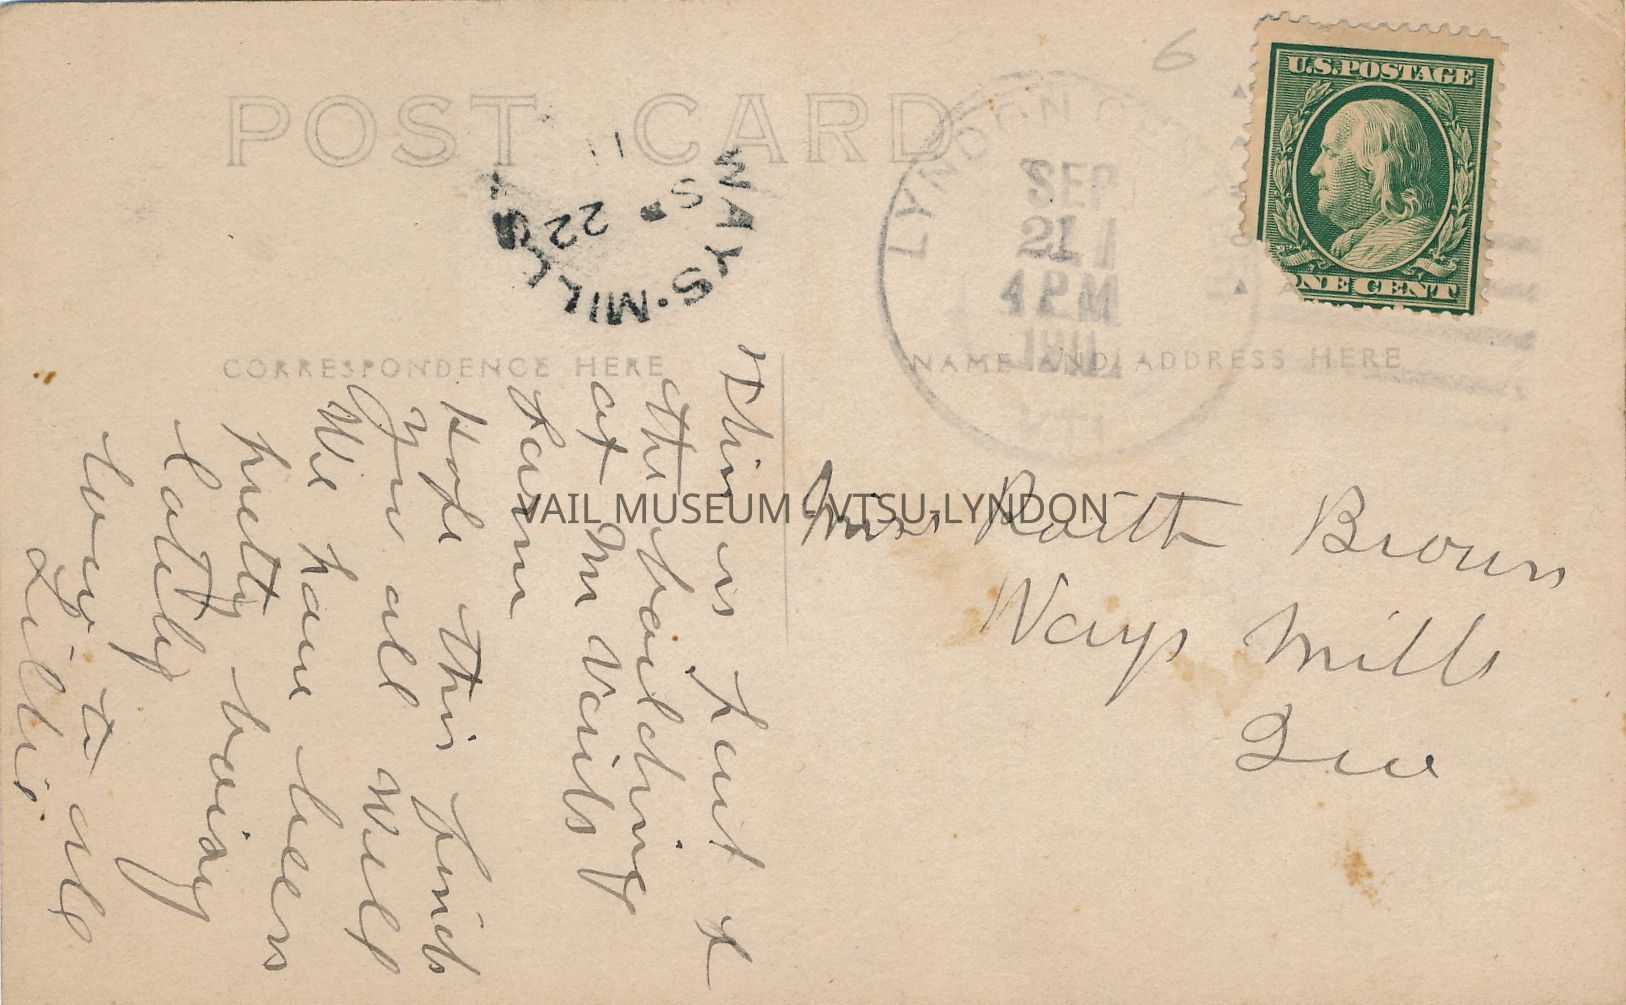 POST CARD
CORRESPONDENCE HERE
NAME AND ADDRESS HERE
U.S. POSTAGE
ONE CENT
LYNDON CE
SEP
21
4 PM
1911
WAYS. MILLS
S
22
11
6
This is part of
the building
at Mr Vails
farm
Hope this finds
you all well
We have been
pretty busy
lately
Love to all
Lillis
Miss Ruth Brown
Ways Mills
Que
VAIL MUSEUM - VTSU-LYNDON